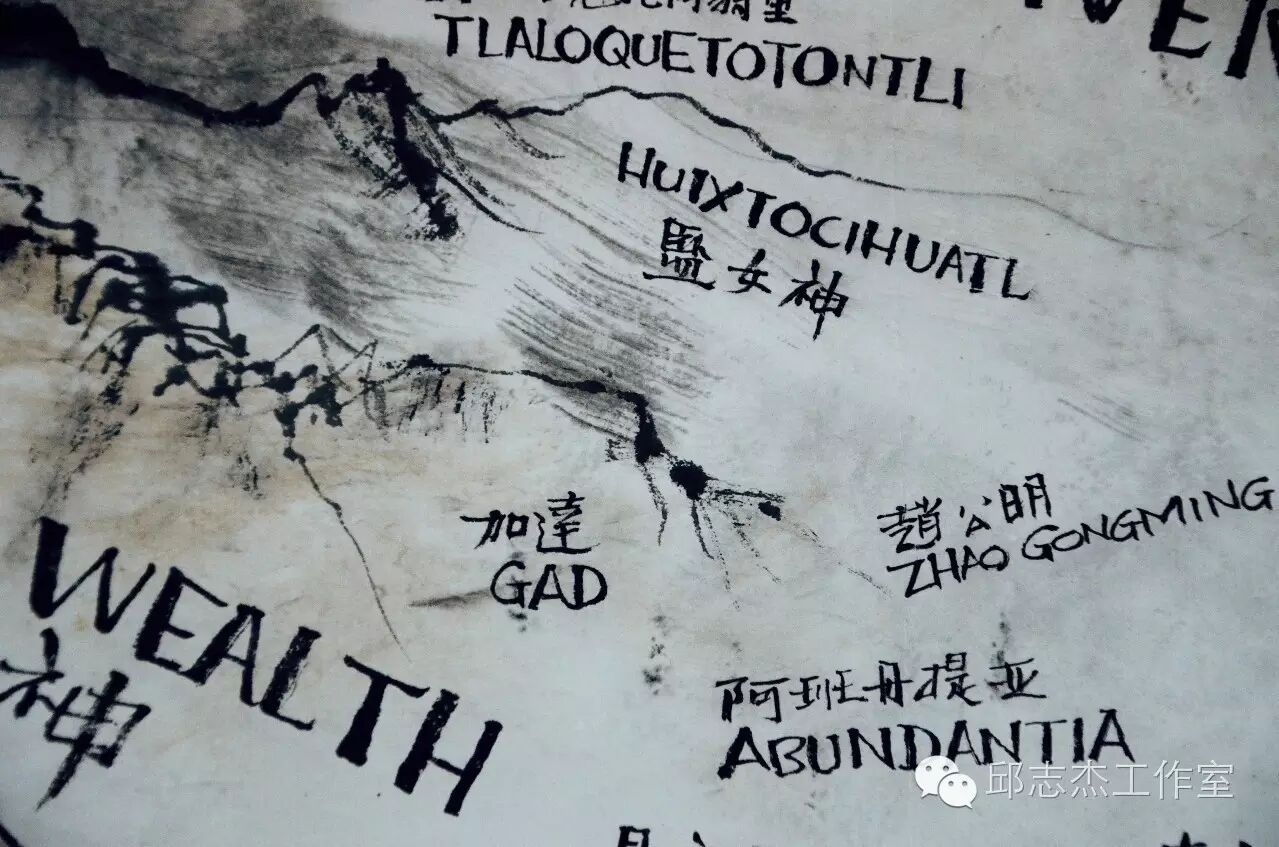 TLALOQUETOTONTLI
HUIXTOCIHUATL
鹽女神
加達
GAD
趙公明
ZHAO GONGMING
WEALTH
神
阿班丹提亚
ABUNDANTIA
邱志杰工作室